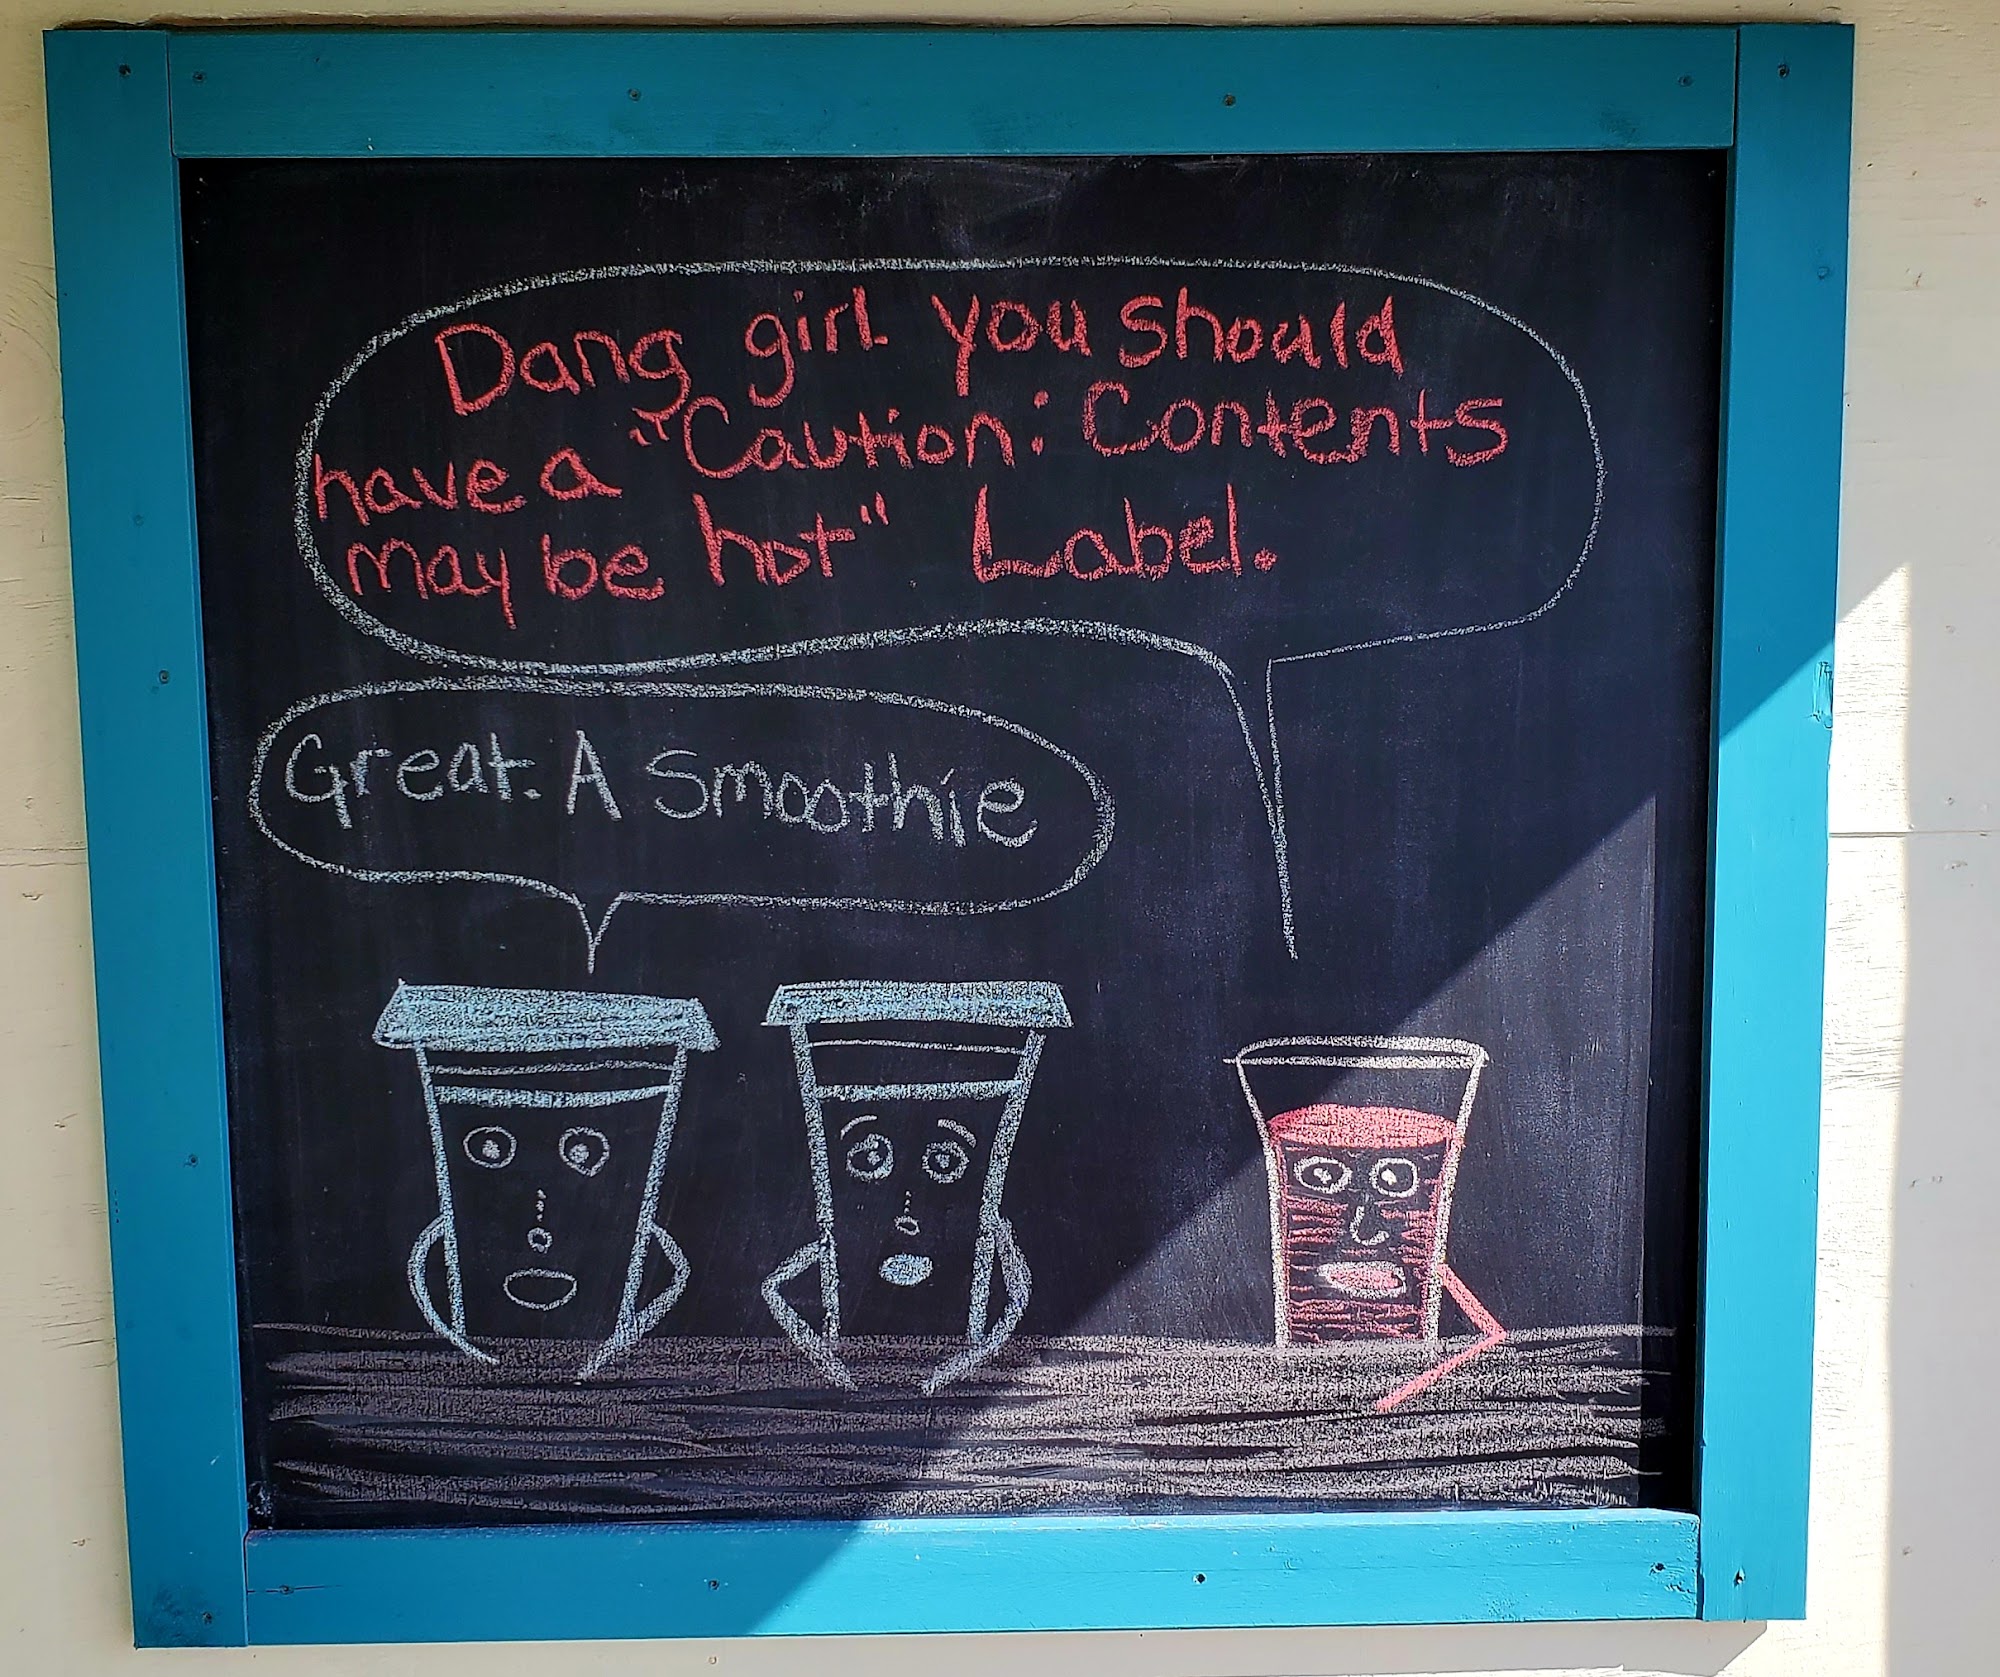 Dang girl you should
have a "Caution: Contents
may be hot" Label.
Great. A smoothie